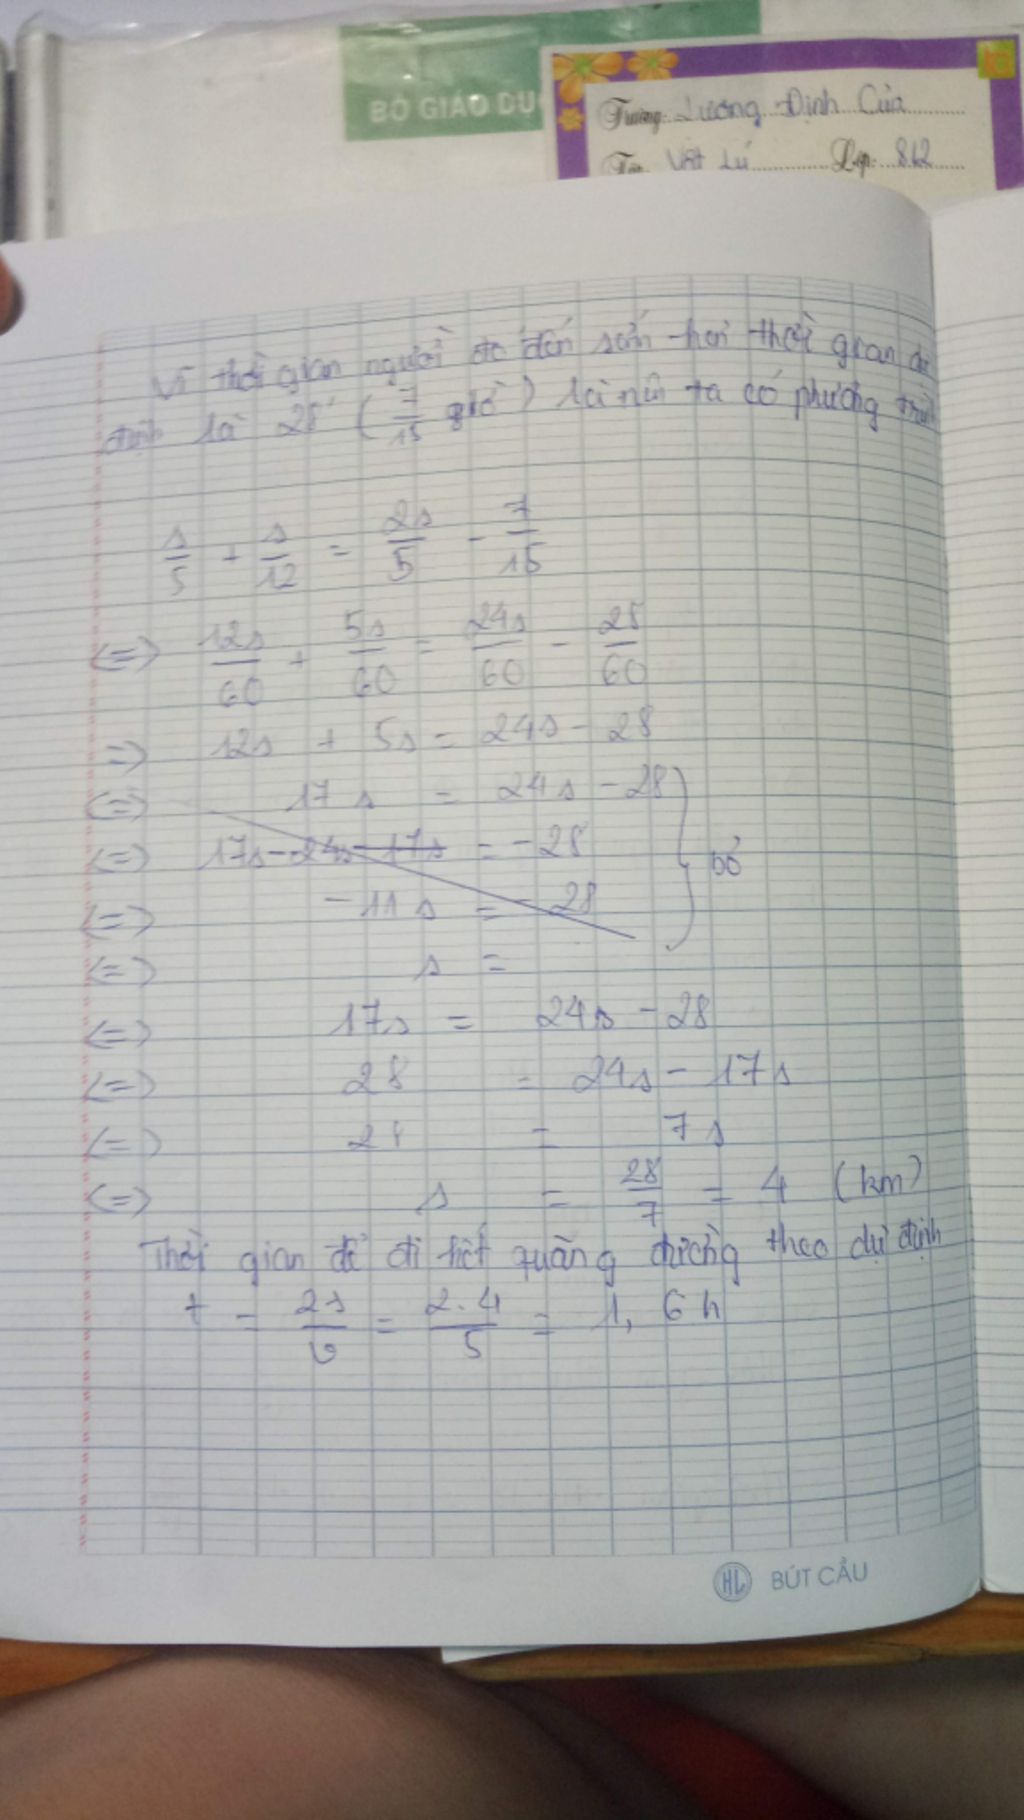 BỘ GIÁO DỤ
Trường: Lương Định Của
Tên Vật Lí Lớp: 8/12
Vì thời gian người đó đến sớm hơn thời gian dự
định là 28' (7/15 giờ) là nên ta có phương trình
s/5 + s/12 = 2s/5 - 7/15
<=> 12s/60 + 5s/60 = 24s/60 - 28/60
=> 12s + 5s = 24s - 28
<=> 17s = 24s - 28
<=> 17s - 24s - 17s = -28
bỏ
<=> -11s = -28
<=> s =
<=> 17s = 24s - 28
<=> 28 = 24s - 17s
<=> 28 = 7s
<=> s = 28/7 = 4 (km)
Thời gian để đi hết quãng đường theo dự định
t = 2s/v = 2.4/5 = 1,6h
HL BÚT CẦU